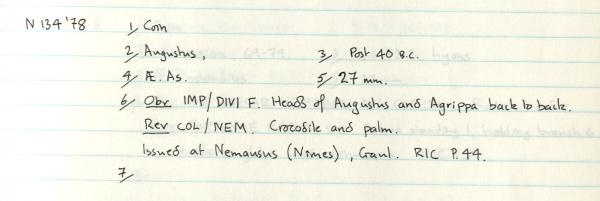 N 134 '78 1/ Coin
2/ Augustus, 3/ Post 40 B.C.
4/ Æ. As. 5/ 27 mm.
6/ Obv IMP/DIVI F. Heads of Augustus and Agrippa back to back.
Rev COL/NEM. Crocodile and palm.
Issued at Nemausus (Nimes), Gaul. RIC P.44.
7/